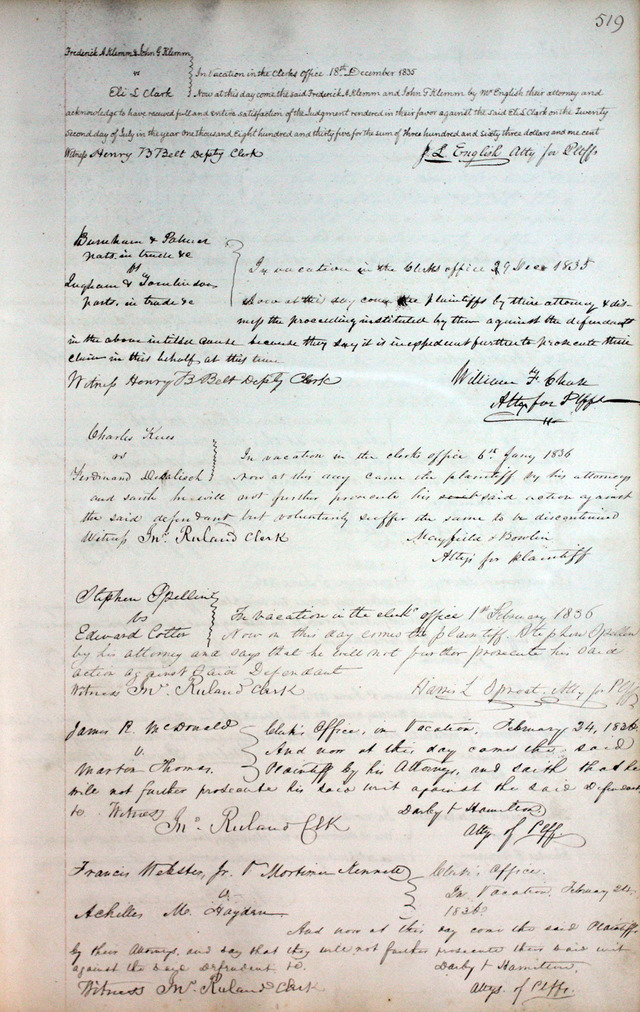 519
Frederick A Klemm & John G Klemm
vs
Eli L Clark
In Vacation in the Clerks Office 18th December 1835
Now at this day come the said Frederick A Klemm and John G Klemm by Mr English their attorney and
acknowledge to have received full and entire satisfaction of the Judgment rendered in their favor against the said Eli L Clark on the Twenty
second day of July in the year One thousand Eight hundred and thirty five for the sum of three hundred and sixty three dollars and one cent
Witness Henry B Belt Depty Clerk
J. L. English Atty for Pltffs
Burnham & Palmer
parts. in trade &c
vs
Ingham & Tomlinson
parts. in trade &c
In vacation in the Clerks office 29 Dec 1835
Now at this day come the plaintiffs by their attorney & dis-
miss the proceeding instituted by them against the defendants
in the above intitled cause because they say it is inexpedient further to prosecute their
claim in this behalf at this time
Witness Henry B Belt Depty Clerk
William F. Chase
Atty for Plffs
Charles Kues
vs
Ferdinand
In vacation in the clerks office 6th Jany 1836
Now at this day came the plaintiff by his attorneys
and saith he will not further prosecute his said action against
the said defendant but voluntarily suffer the same to be discontinued
Witness Jno. Ruland Clerk
Mayfield & Bowlin
Attys for plaintiff
Stephen Spelling
vs
Edward Cotter
In vacation in the clerks office 1st February 1836
Now on this day comes the plaintiff Stephen
by his attorney and says that he will not further prosecute his said
action against said Defendant
Witness Jno. Ruland Clerk
Harris L Sproat Atty for Plff
James R. McDonald
v.
Martin Thomas.
Clerk's Office, in Vacation, February 24, 1836.
And now at this day came the said
Plaintiff by his Attorneys, and saith that he
will not further prosecute his said suit against the said Defendant
to. Witness
Jno. Ruland Clk
Darby & Hamilton,
Attys. of Plff.
Francis Webster, Jr. & Mortimer Kennett
v.
Achilles M. Hayden
Clerk's Office.
In Vacation, February 24.
1836.
And now at this day come the said Plaintiffs
by their Attorneys, and say that they will not further prosecute their said suit
against the said Defendant to.
Darby & Hamilton,
Witness Jno. Ruland Clerk
Attys. of Plffs.